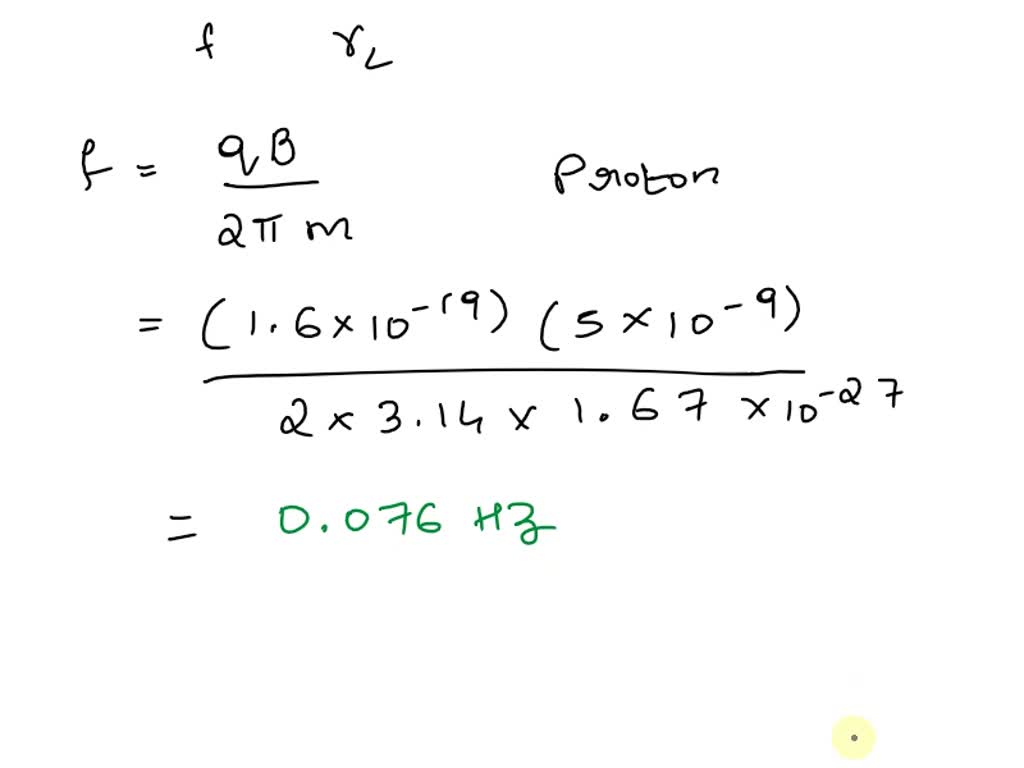 f r_L
f = qB / 2π m
Proton
= (1.6 × 10^-19) (5 × 10^-9) / 2 × 3.14 × 1.67 × 10^-27
= 0.076 Hz